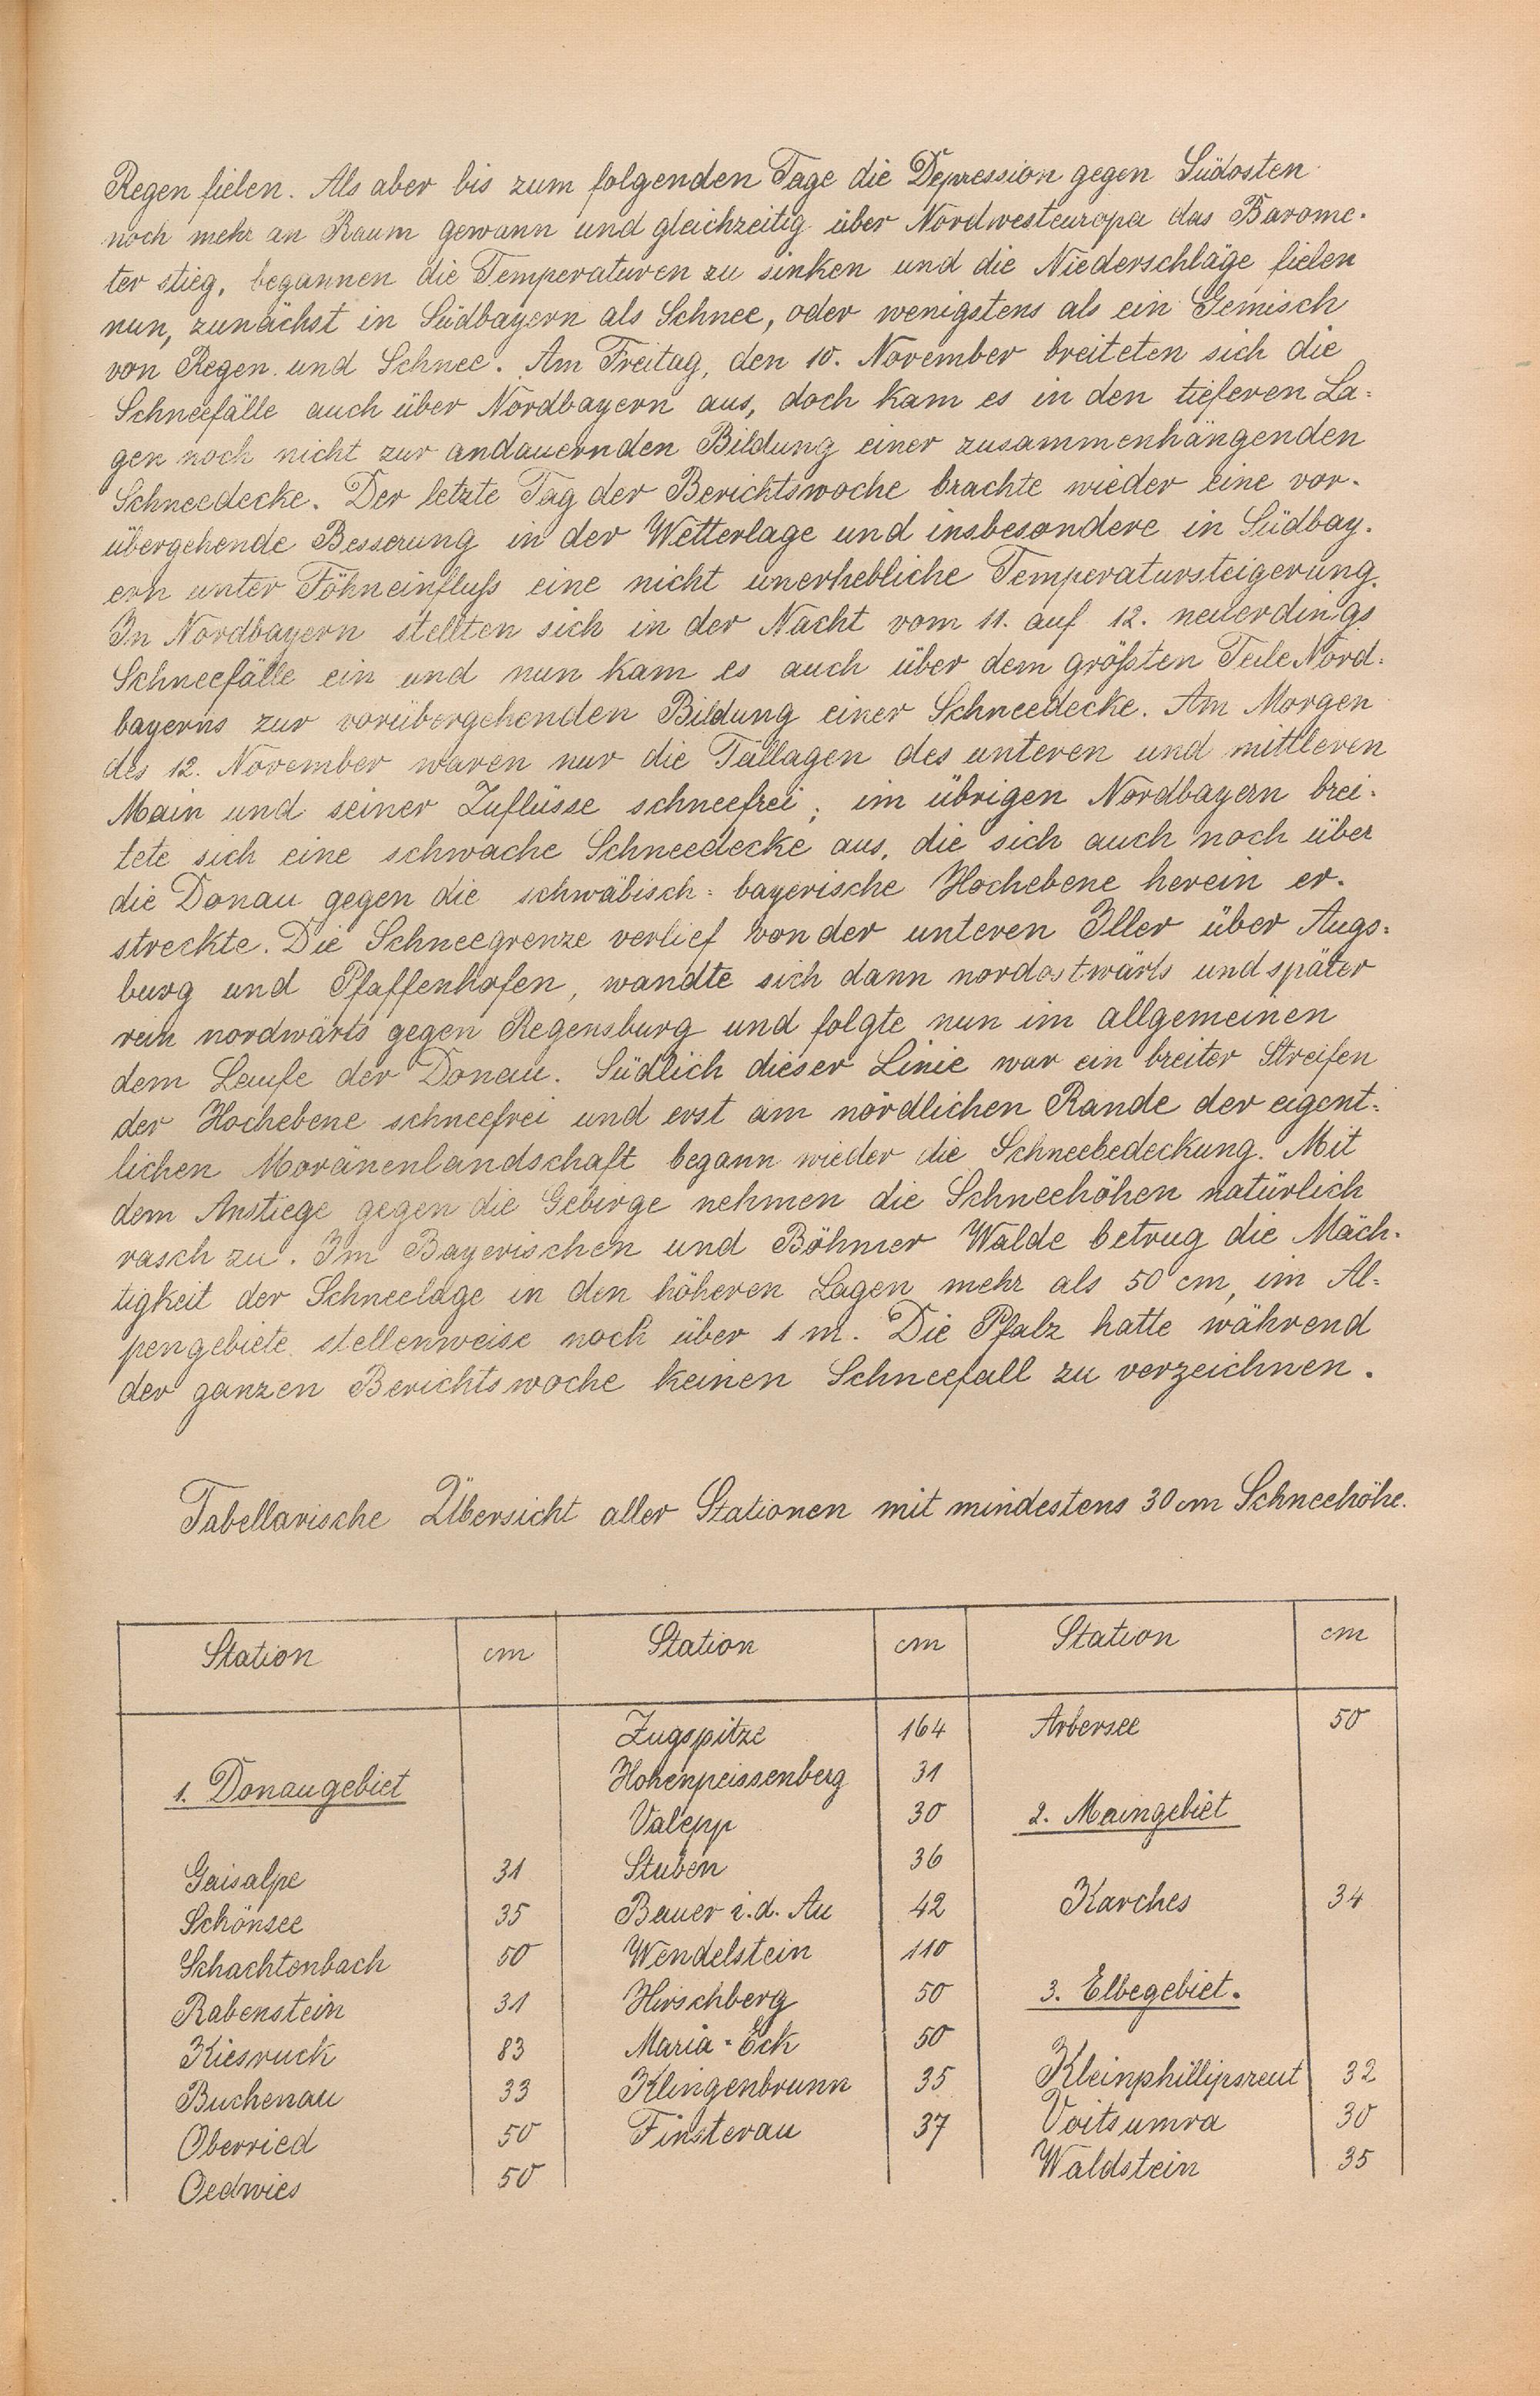 Regen fielen. Als aber bis zum folgenden Tage die Depression gegen Südosten
noch mehr an Raum gewann und gleichzeitig über Nordwesteuropa das Barome-
ter stieg, begannen die Temperaturen zu sinken und die Niederschläge fielen
nun, zunächst in Südbayern als Schnee, oder wenigstens als ein Gemisch
von Regen und Schnee. Am Freitag, den 10. November breiteten sich die
Schneefälle auch über Nordbayern aus, doch kam es in den tieferen La=
gen noch nicht zur andauernden Bildung einer zusammenhängenden
Schneedecke. Der letzte Tag der Berichtswoche brachte wieder eine vor-
übergehende Besserung in der Wetterlage und insbesondere in Südbay-
ern unter Föhneinfluß eine nicht unerhebliche Temperatursteigerung.
In Nordbayern stellten sich in der Nacht vom 11. auf 12. neuerdings
Schneefälle ein und nun kam es auch über dem größten Teile Nord=
bayerns zur vorübergehenden Bildung einer Schneedecke. Am Morgen
des 12. November waren nur die Tallagen des unteren und mittleren
Main und seiner Zuflüsse schneefrei; im übrigen Nordbayern brei-
tete sich eine schwache Schneedecke aus, die sich auch noch über
die Donau gegen die schwäbisch=bayerische Hochebene herein er-
streckte. Die Schneegrenze verlief von der unteren Iller über Augs=
burg und Pfaffenhofen, wandte sich dann nordostwärts und später
rein nordwärts gegen Regensburg und folgte nun im allgemeinen
dem Laufe der Donau. Südlich dieser Linie war ein breiter Streifen
der Hochebene schneefrei und erst am nördlichen Rande der eigent=
lichen Moränenlandschaft begann wieder die Schneebedeckung. Mit
dem Anstiege gegen die Gebirge nehmen die Schneehöhen natürlich
rasch zu. Im Bayerischen und Böhmer Walde betrug die Mäch-
tigkeit der Schneelage in den höheren Lagen mehr als 50 cm, im Al=
pengebiete stellenweise noch über 1 m. Die Pfalz hatte während
der ganzen Berichtswoche keinen Schneefall zu verzeichnen.
Tabellarische Übersicht aller Stationen mit mindestens 30 cm Schneehöhe.
Station cm Station cm Station cm
1. Donaugebiet
Gaisalpe 31
Schönsee 35
Schachtenbach 50
Rabenstein 31
Kiesruck 83
Buchenau 33
Oberried 50
Oedwies 50
Zugspitze 164
Hohenpeissenberg 31
Valepp 30
Stuben 36
Bauer i.d. Au 42
Wendelstein 110
Hirschberg 50
Maria-Eck 50
Klingenbrunn 35
Finsterau 37
Arbersee 50
2. Maingebiet
Karches 34
3. Elbegebiet.
Kleinphillipsreut 32
Voitsumra 30
Waldstein 35